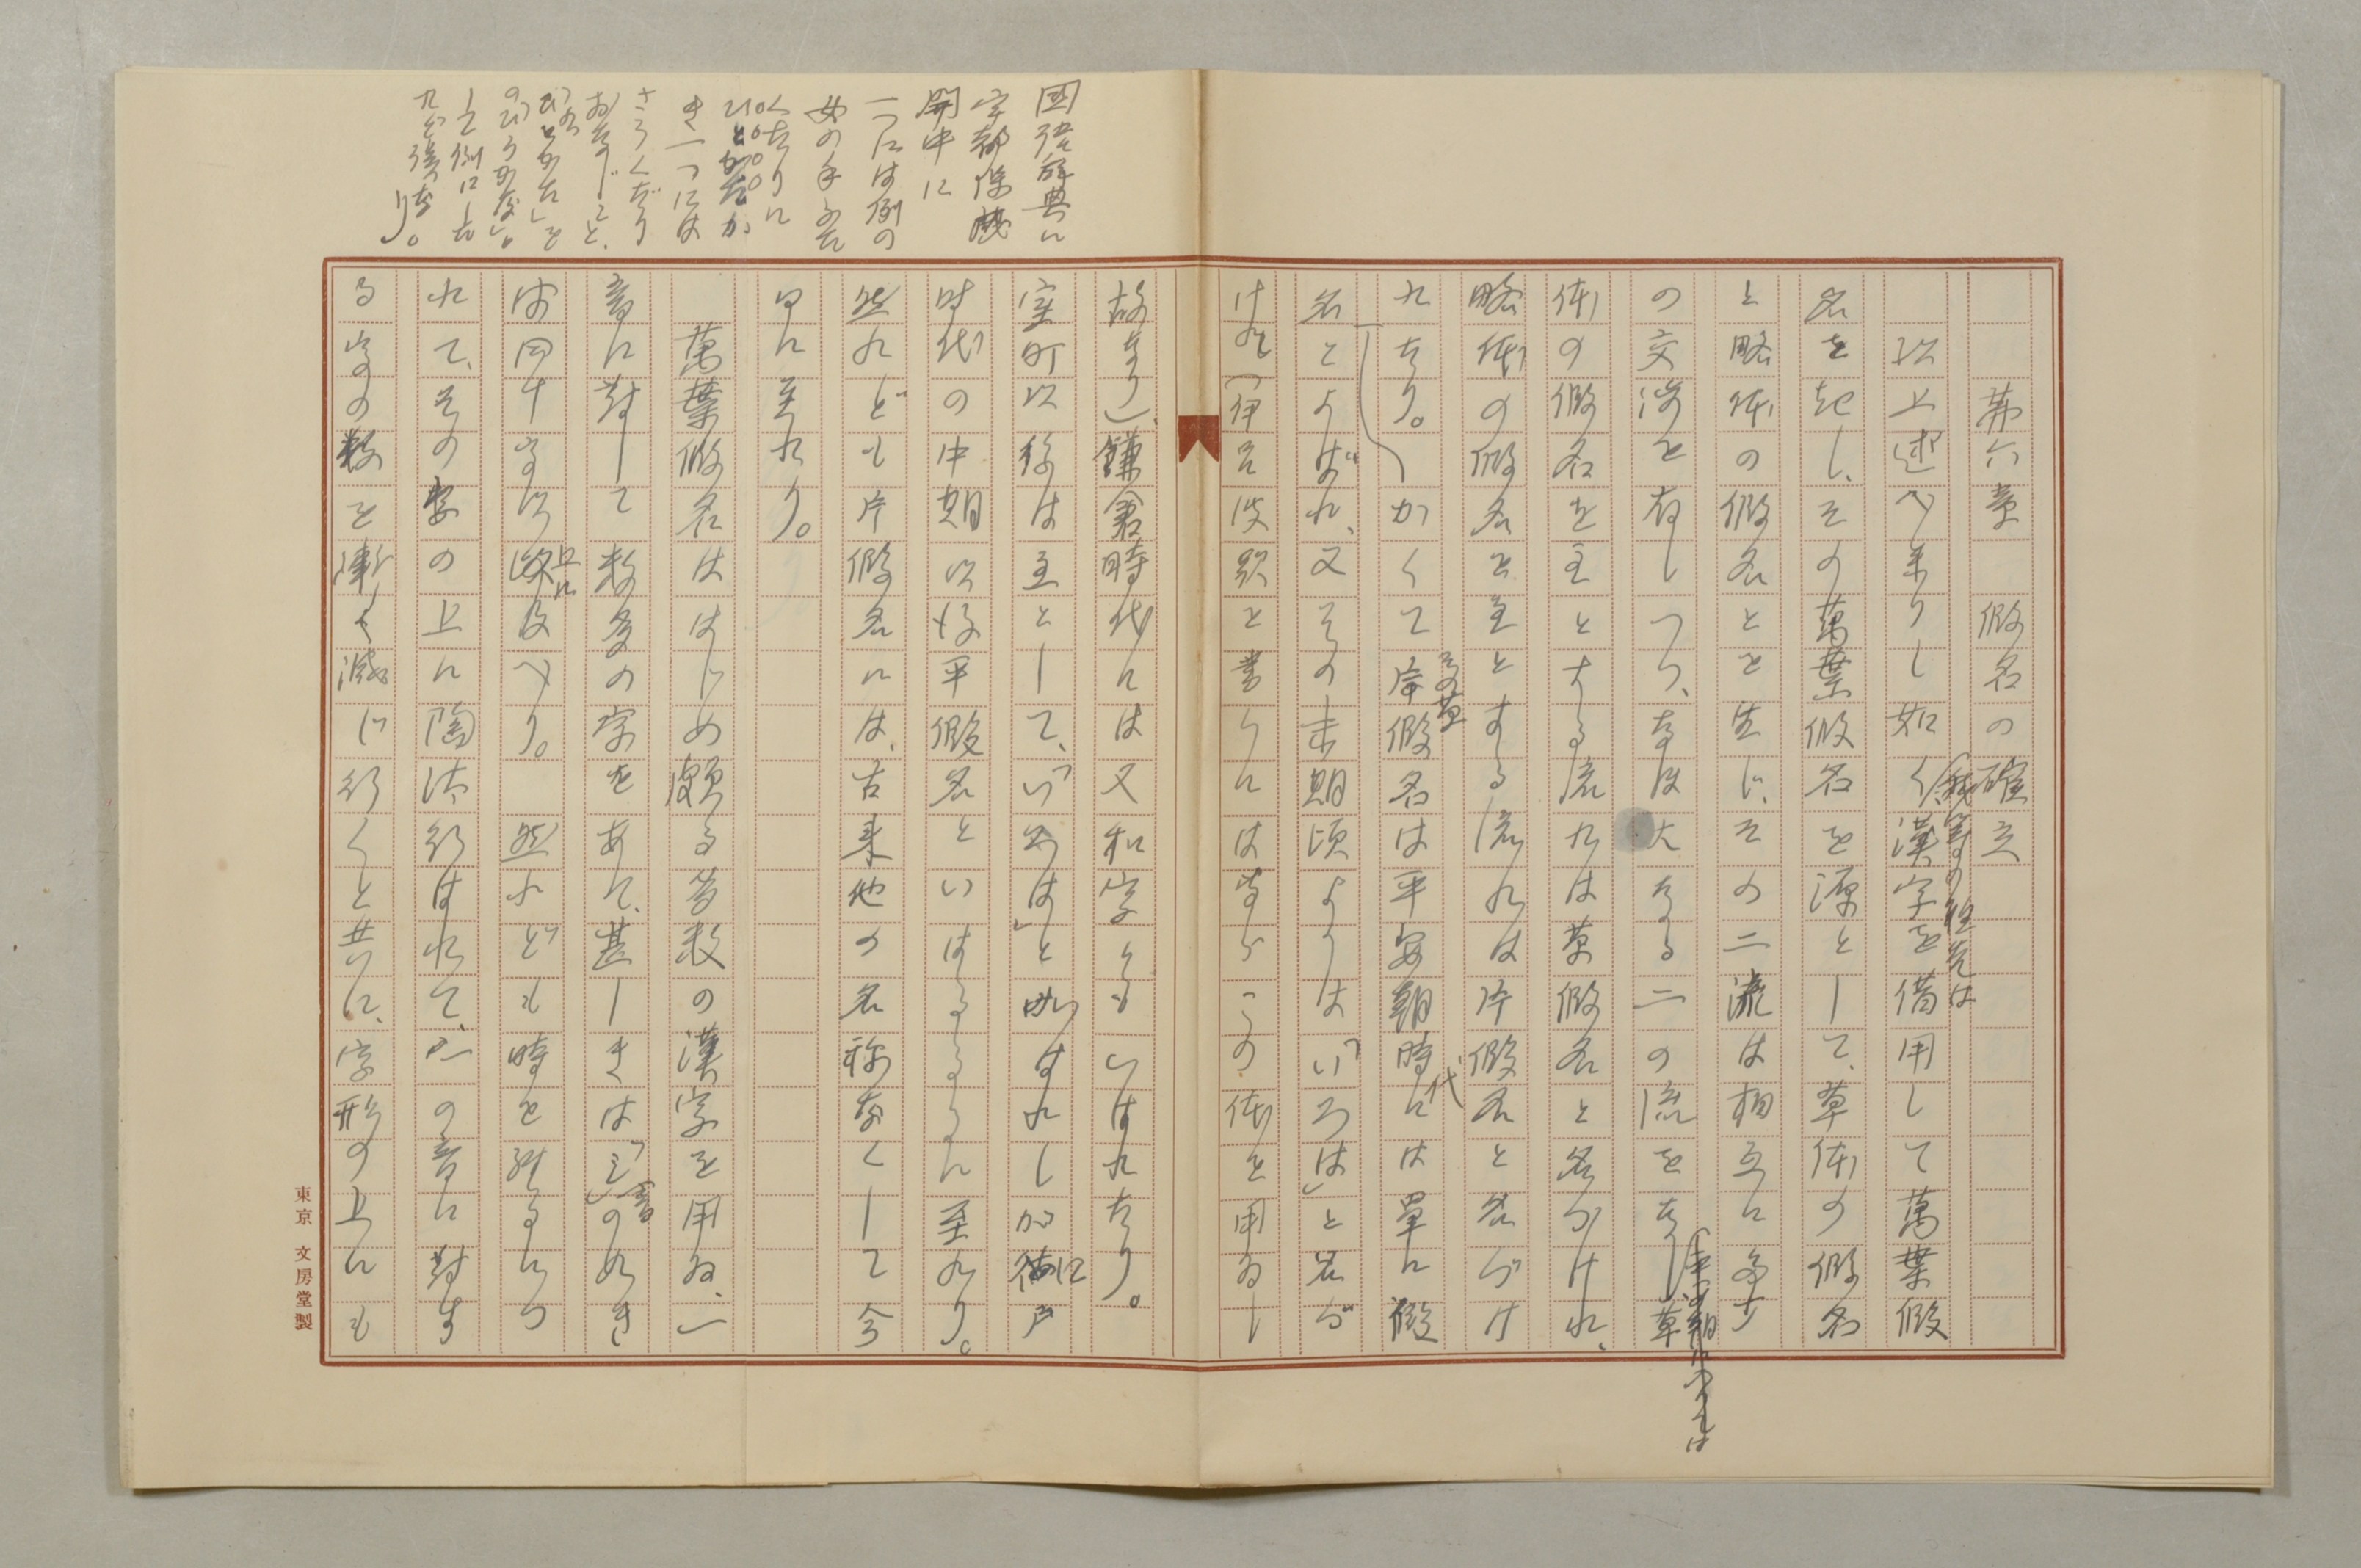 第六章 假名の確立
以上述べ来りし如く、我等の祖先は漢字を借用して萬葉假
名を起し、その萬葉假名を源として、草体の假名
と略体の假名とを生じ、その二流は相互に多少
の交渉を有しつつ、なほ大なる二の流をなし、草
体の假名を主とする流れは草假名と名づけれ、
略体の假名を主とする流れは片假名と名づけ
れたり。かくてその草假名は平安朝時代には單に假
名とよばれ、又その末期頃よりは「いろは」と名づ
けれ(伊呂波歌を書くには専らこの体を用ゐし
故なり)、鎌倉時代には又和字ともいはれたり。
室町以後は主として、「いろは」といはれしが江戸
時代の中期以後平假名といはるるに至れり。
然れども片假名には、古来他の名称なくして今
日に至れり。
萬葉假名ははじめ頗る多数の漢字を用ゐ、一
音に對して数多の字をあて、甚しきは「シ」音の如き
は四十字以上に及べり。然れども時を経るにつ
れて、その字の上に陶汰行はれて、一の音に對す
る字の数を漸く減じ行くと共に、字形の上にも
國語辞典に
宇都保蔵
開中に
一つには例の
女の手ふた
くだりに
ひとかたか
き一つには
さうくだり
おなじこと、
「ひとかた」を
のひらがな」
して例にした
れど誤なり。
東京 文房堂製